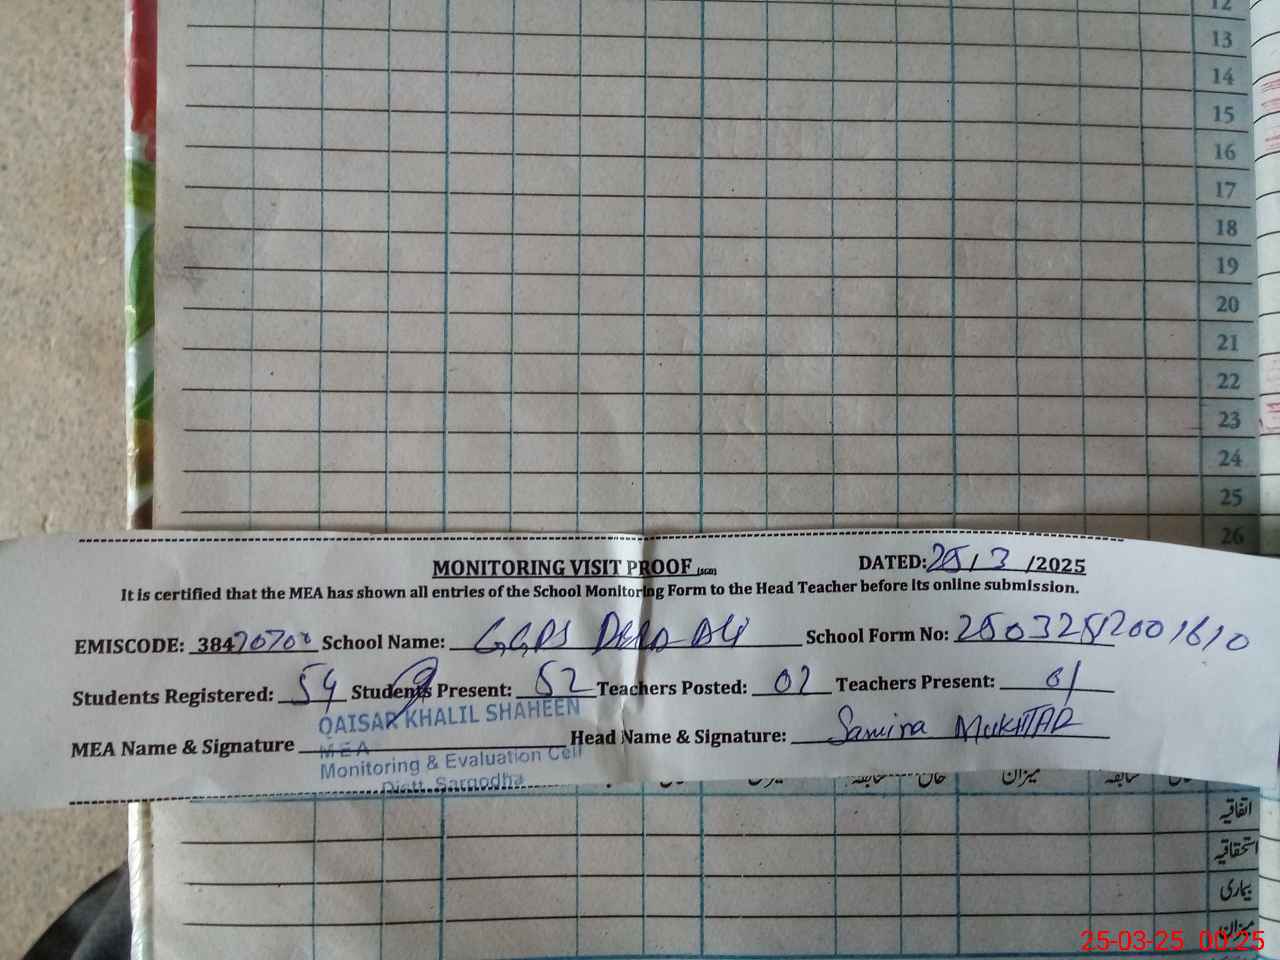 12
13
14
15
16
17
18
19
20
21
22
23
24
25
26
MONITORING VISIT PROOF (SCM) DATED: 25/3/2025
It is certified that the MEA has shown all entries of the School Monitoring Form to the Head Teacher before its online submission.
EMISCODE: 384 School Name: GGPS DERA ALI School Form No:
Students Registered: 54 Students Present: 52 Teachers Posted: 02 Teachers Present: 01
QAISAR KHALIL SHAHEEN
MEA Name & Signature MEA Head Name & Signature: Samina MUKHTAR
Monitoring & Evaluation Cell
Distt. Sargodha
میزان سابقہ حال میزان سابقہ
اتفاقیہ
استحقاقیہ
بیماری
میزان
25-03-25 00:25